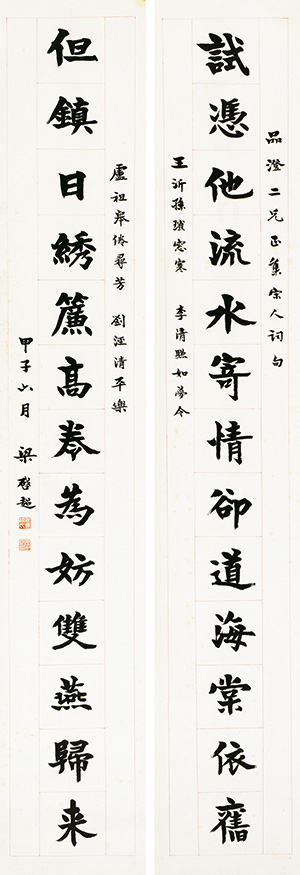 品澄二兄正集宋人詞句
試憑他流水寄情卻道海棠依舊
王沂孫瑣窓寒 李清照如夢令
盧祖皋倦尋芳 劉涇清平樂
但鎮日綉簾高卷為妨雙燕歸来
甲子六月 梁啟超